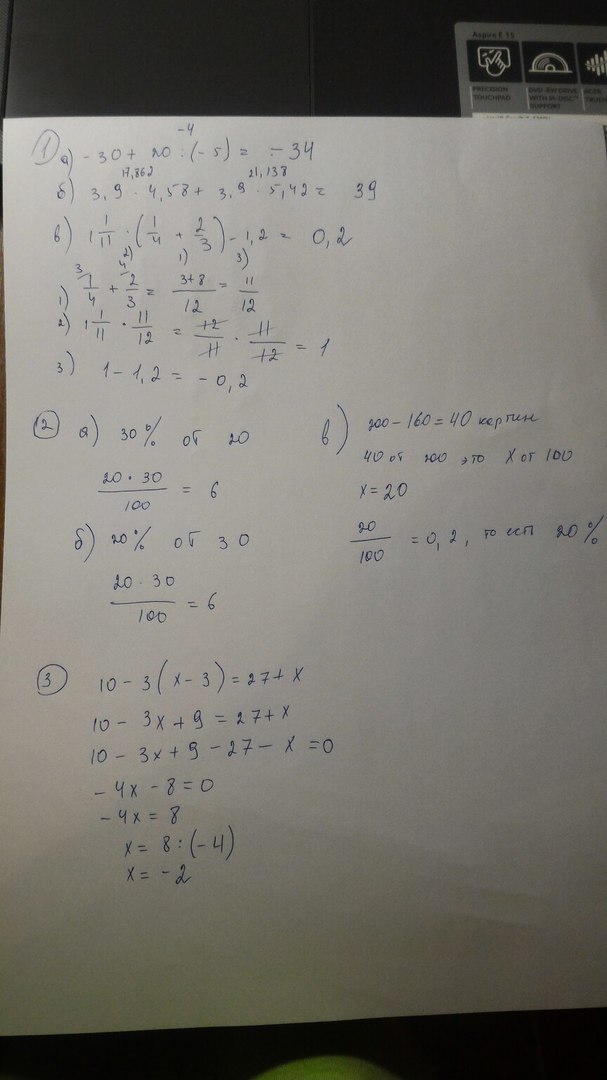 Aspire E 15
PRECISION TOUCHPAD
DVD-RW DRIVE WITH M-DISC™ SUPPORT
ACER
1) а) -30 + 20 : (-5) = -34
-4
17,862 21,138
б) 3,9 · 4,58 + 3,9 · 5,42 = 39
в) 1 1/11 · (1/4 + 2/3) - 1,2 = 0,2
2) 1) 3)
1) 1/4 + 2/3 = 3+8/12 = 11/12
3 4
2) 1 1/11 · 11/12 = 12/11 · 11/12 = 1
3) 1 - 1,2 = -0,2
2) а) 30% от 20
20 · 30/100 = 6
б) 20% от 30
20 · 30/100 = 6
в) 200 - 160 = 40 картин
40 от 200 это X от 100
x = 20
20/100 = 0,2, то есть 20%
3) 10 - 3(x - 3) = 27 + x
10 - 3x + 9 = 27 + x
10 - 3x + 9 - 27 - x = 0
-4x - 8 = 0
-4x = 8
x = 8 : (-4)
x = -2